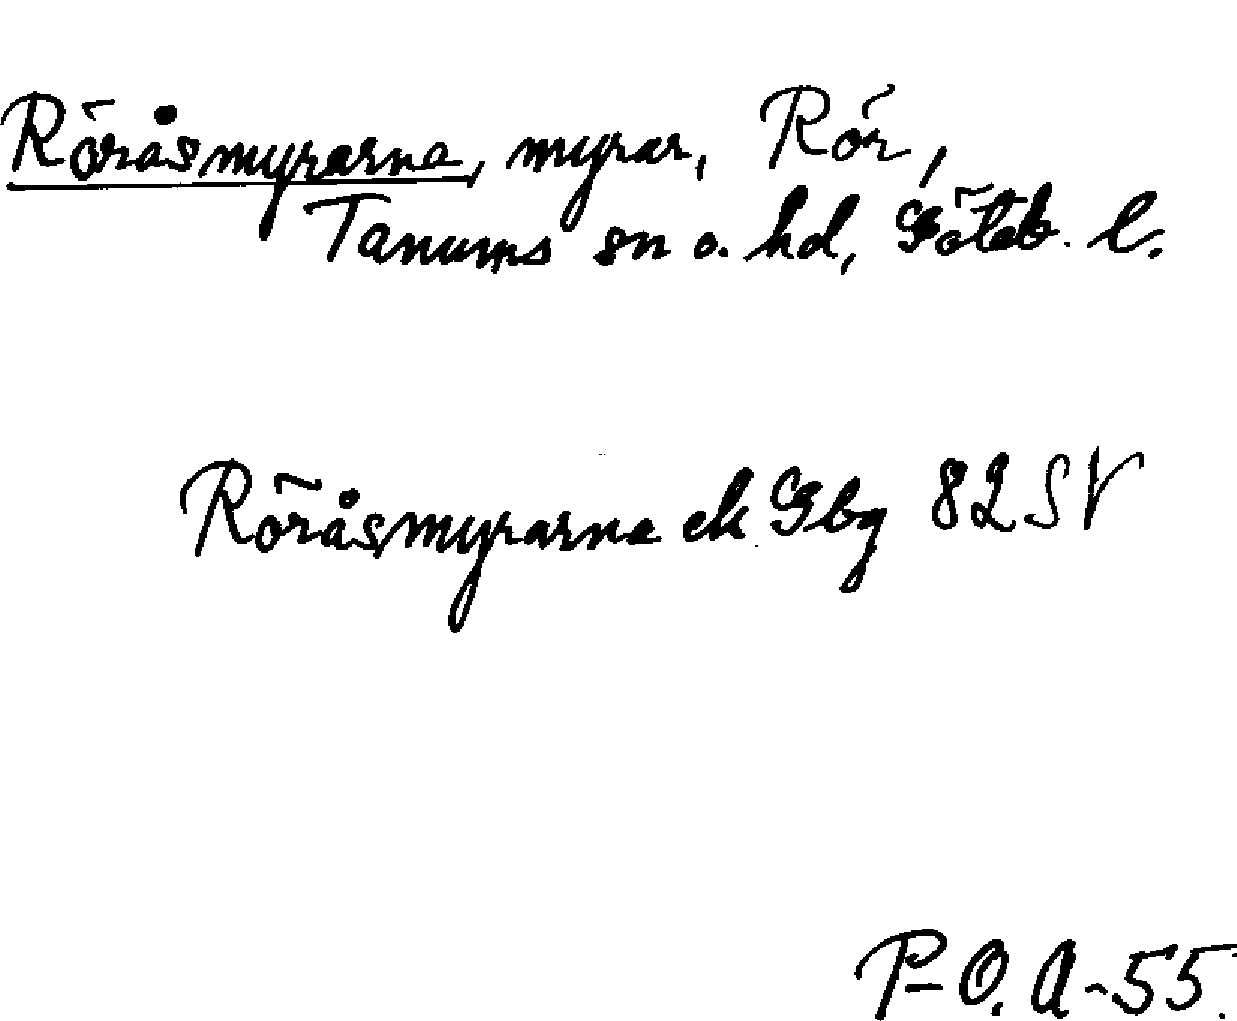 Röråsmyrarne, myrar, Rör,
Tanums sn o. hd, Göteb. l.
Röråsmyrarne ek Gbg 82 SV
P-O. A-55.